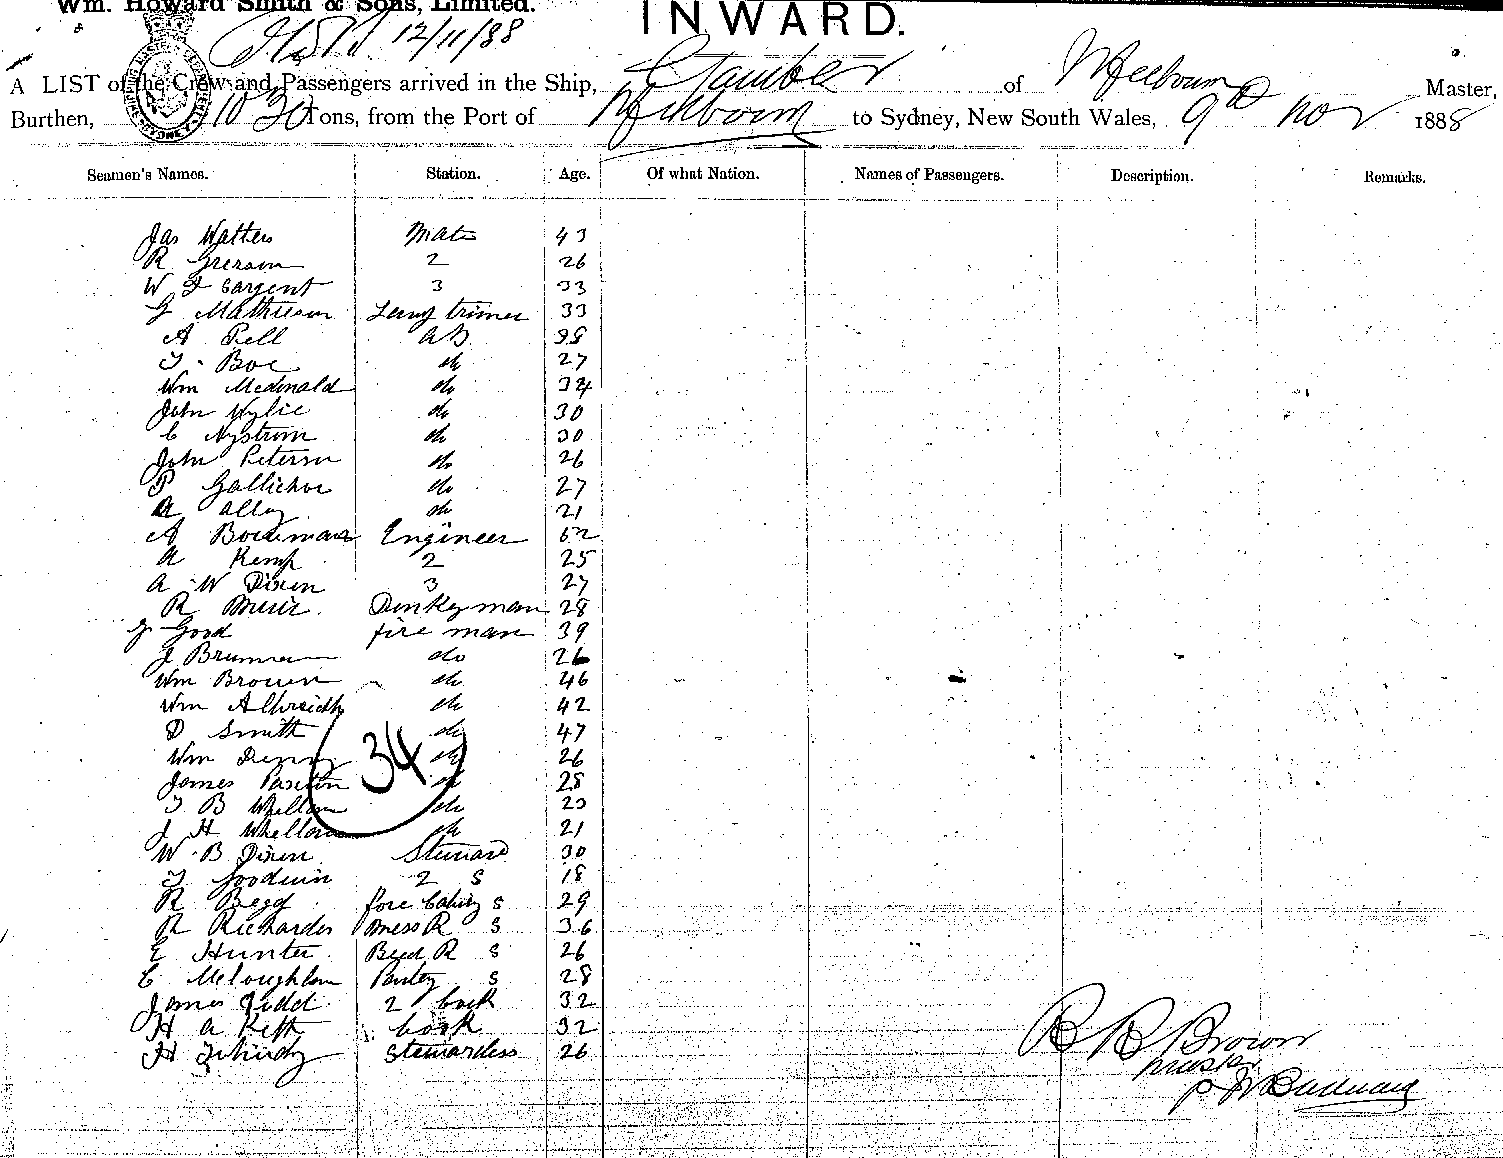 Wm. Howard Smith & Sons, Limited.
INWARD.
12/11/88
A LIST of the Crew and Passengers arrived in the Ship, of Melbourne Master,
Burthen, 1030 Tons, from the Port of Melbourne to Sydney, New South Wales, 9th Nov 1888
Seamen's Names. Station. Age. Of what Nation. Names of Passengers. Description. Remarks.
Jas Watters Mate 43
R Grerson 2 26
W F Sargent 3 33
G Mathieson Lamp trimer 33
A Pell AB
T. Boe do 27
Wm Mcdonald do 34
John Wylie do 30
C Nystrom do 30
John Peterson do 26
P Gallichoe do 27
A Alley do 21
A Engineer 52
A Kemp 2 25
A. W Dixon 3 27
R Muir. Donkeyman 28
G Good fire man 39
J do 26
Wm Brown do 46
Wm do 42
D Smith do 47
Wm Denny do 26
James do 28
T B Whellan do 23
J H Whellan do 21
34
W. B Dixon Steward 30
T Goodwin 2 S 18
R Begg fore Cabin S 29
R Richards Mess R S 36
E Hunter Bed R S 26
C McLoughlan Pantry S 28
James Judd 2 Cook 32
H A Cook 32
H Stewardess 26
R B Brown
Master